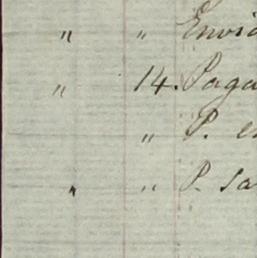 " " Envia
" 14. Paga
" P. e
" " P. sa